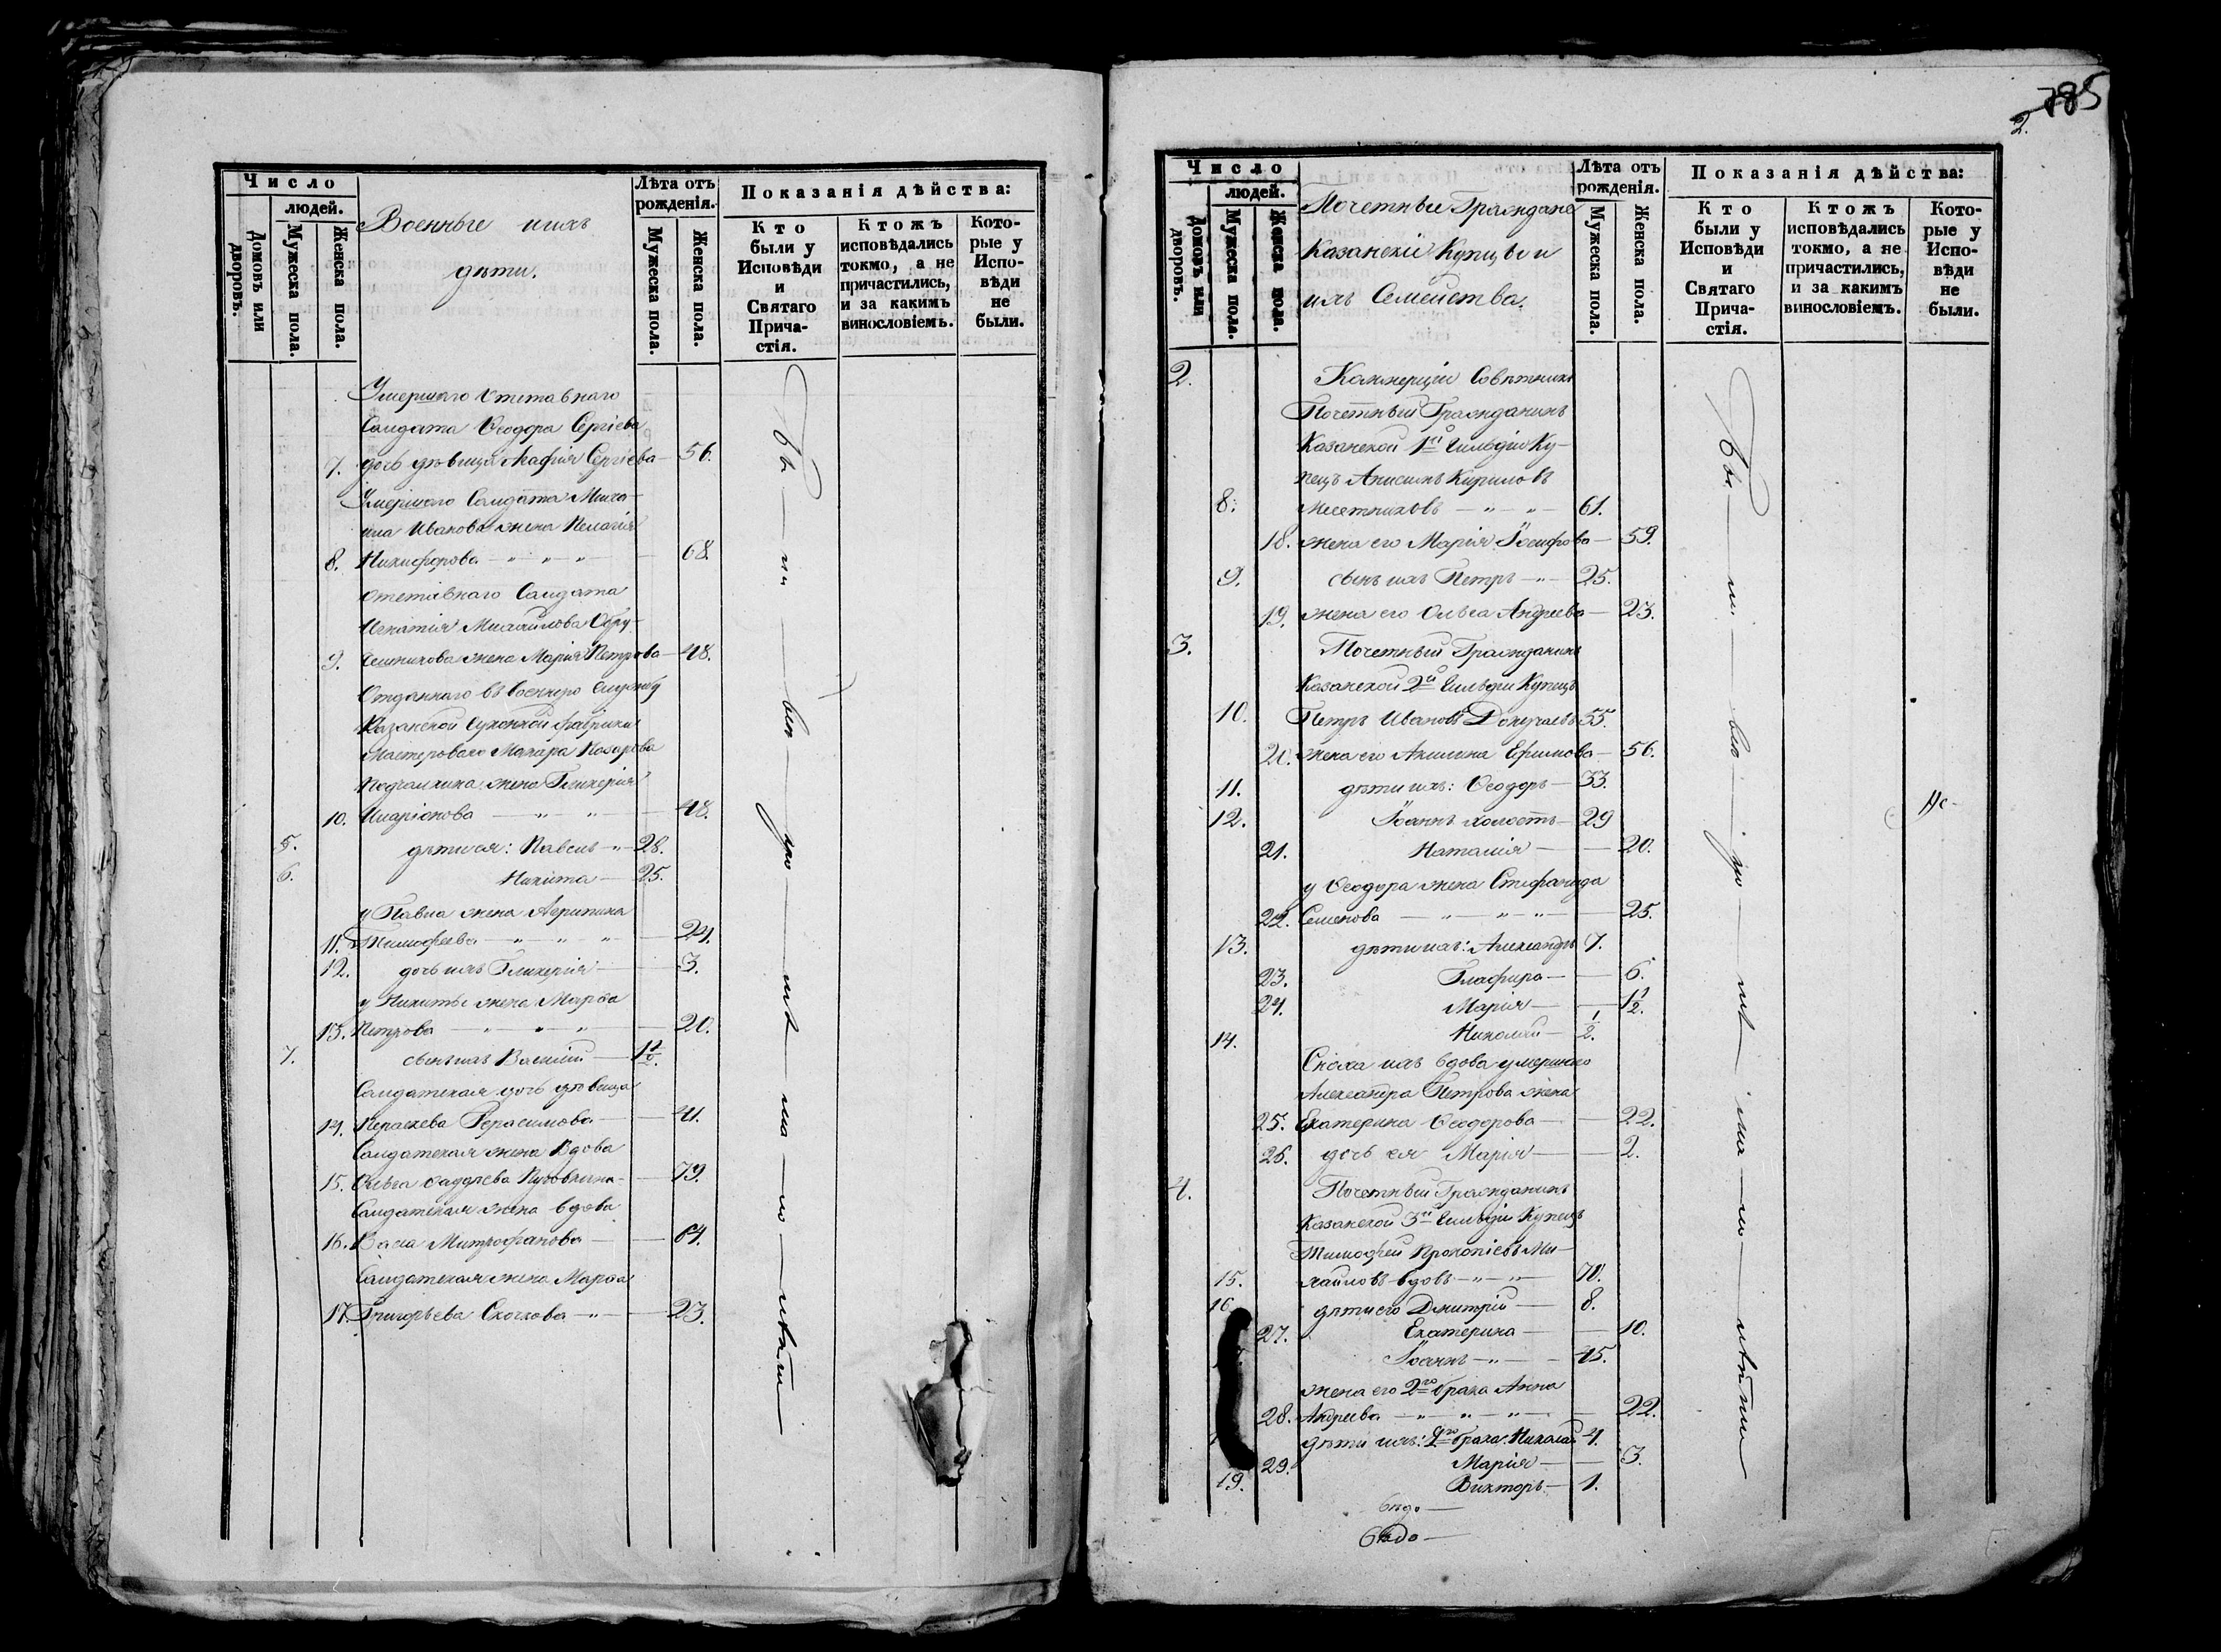 Число
людей.
Домовъ или дворовъ.
Мужеска пола.
Женска пола.
Военные и ихъ
дѣти.
Лѣта отъ рожденія.
Мужеска пола.
Женска пола.
Показанія дѣйства:
Кто были у Исповѣди и Святаго Прича- стія.
Ктожъ исповѣдались токмо, а не причастились, и за какимъ винословіемъ.
Кото- рые у Испо- вѣди не были.
Умершаго отставнаго
Солдата Ѳеодора Сергіева
7. дочь дѣвица Агафія Сергіева — 56.
Умершаго Солдата Миха-
ила Иванова жена Пелагія
8. Никифорова — „ — „ — 68.
отставнаго Солдата
Игнатія Михайлова Обру-
9. чешникова жена Марія Петрова — 48.
Отданнаго въ военную службу
Казанской Суконной фабрики
Мастероваго Макара Назарова
жена Гликерія
10. Иларіонова — „ — „ — 48.
5. дѣти ея: Павелъ — „ — 28.
6. Никита — 25.
у Павла жена Агрипина
11. Тимофеева — „ — „ — 24.
12. дочь ихъ Гликерія — 3.
у Никиты жена Марѳа
13. Петрова — „ — „ — 20.
7. сынъ ихъ Василій — 1½.
Солдатская дочь дѣвица
14. Параскева Герасимова — 41.
Солдатская жена вдова
15. Ольга Фаддѣева Пуговкина — 79.
Солдатская жена вдова
16. Васса Митрофанова — 64.
Солдатская жена Марѳа
17. Григорьева Скочкова — „ — 23.
Бы — ли — въи — ію — нѣ — ма — ло — лѣтн
2. 785
Число
людей.
Домовъ или дворовъ.
Мужеска пола.
Женска пола.
Почетные Граждане
Казанскіи Купцы и
ихъ Семейства.
Лѣта отъ рожденія.
Мужеска пола.
Женска пола.
Показанія дѣйства:
Кто были у Исповѣди и Святаго Прича- стія.
Ктожъ исповѣдались токмо, а не причастились, и за какимъ винословіемъ.
Кото- рые у Испо- вѣди не были.
2. Коммерціи Совѣтникъ
Почетный Гражданинъ
Казанской 1й Гильдіи Ку-
пецъ Анисимъ Кириловъ
8. Месетниковъ — „ — „ — 61.
18. жена его Марія Іосифова — 59.
9. сынъ ихъ Петръ — „ — 25.
19. жена его Ольга Андреева — 23.
3. Почетный Гражданинъ
Казанской 2й Гильдіи Купецъ
10. Петръ Ивановъ Докучаевъ 55.
20. жена его Акилина Ефимова — 56.
11. дѣти ихъ: Ѳеодоръ — 33.
12. Іоаннъ холостъ — 29
21. Наталія — 20.
у Ѳеодора жена Стефанида
22. Семенова — „ — „ — „ — 25.
13. дѣти ихъ: Александръ 7.
23. Глафира — 6.
24. Марія — 1½.
14. Николай — ½.
Сноха ихъ вдова умершаго
Александра Петрова жена
25. Екатерина Ѳеодорова — 22.
26. дочь ея Марія — 2.
4. Почетный Гражданинъ
Казанской 3й Гильдіи Купецъ
Тимофей Прокопіевъ Ми-
15. хайловъ вдовъ — „ — „ — 70.
16. дѣти его Дмитрій — 8.
27. Екатерина — 10.
Іоаннъ — „ — 45.
жена его 2го брака Анна
28. Андреева — „ — „ — „ — 22.
дѣти ихъ: 2го брака: Николай 4.
29. Марія — 3.
19. Викторъ — 1.